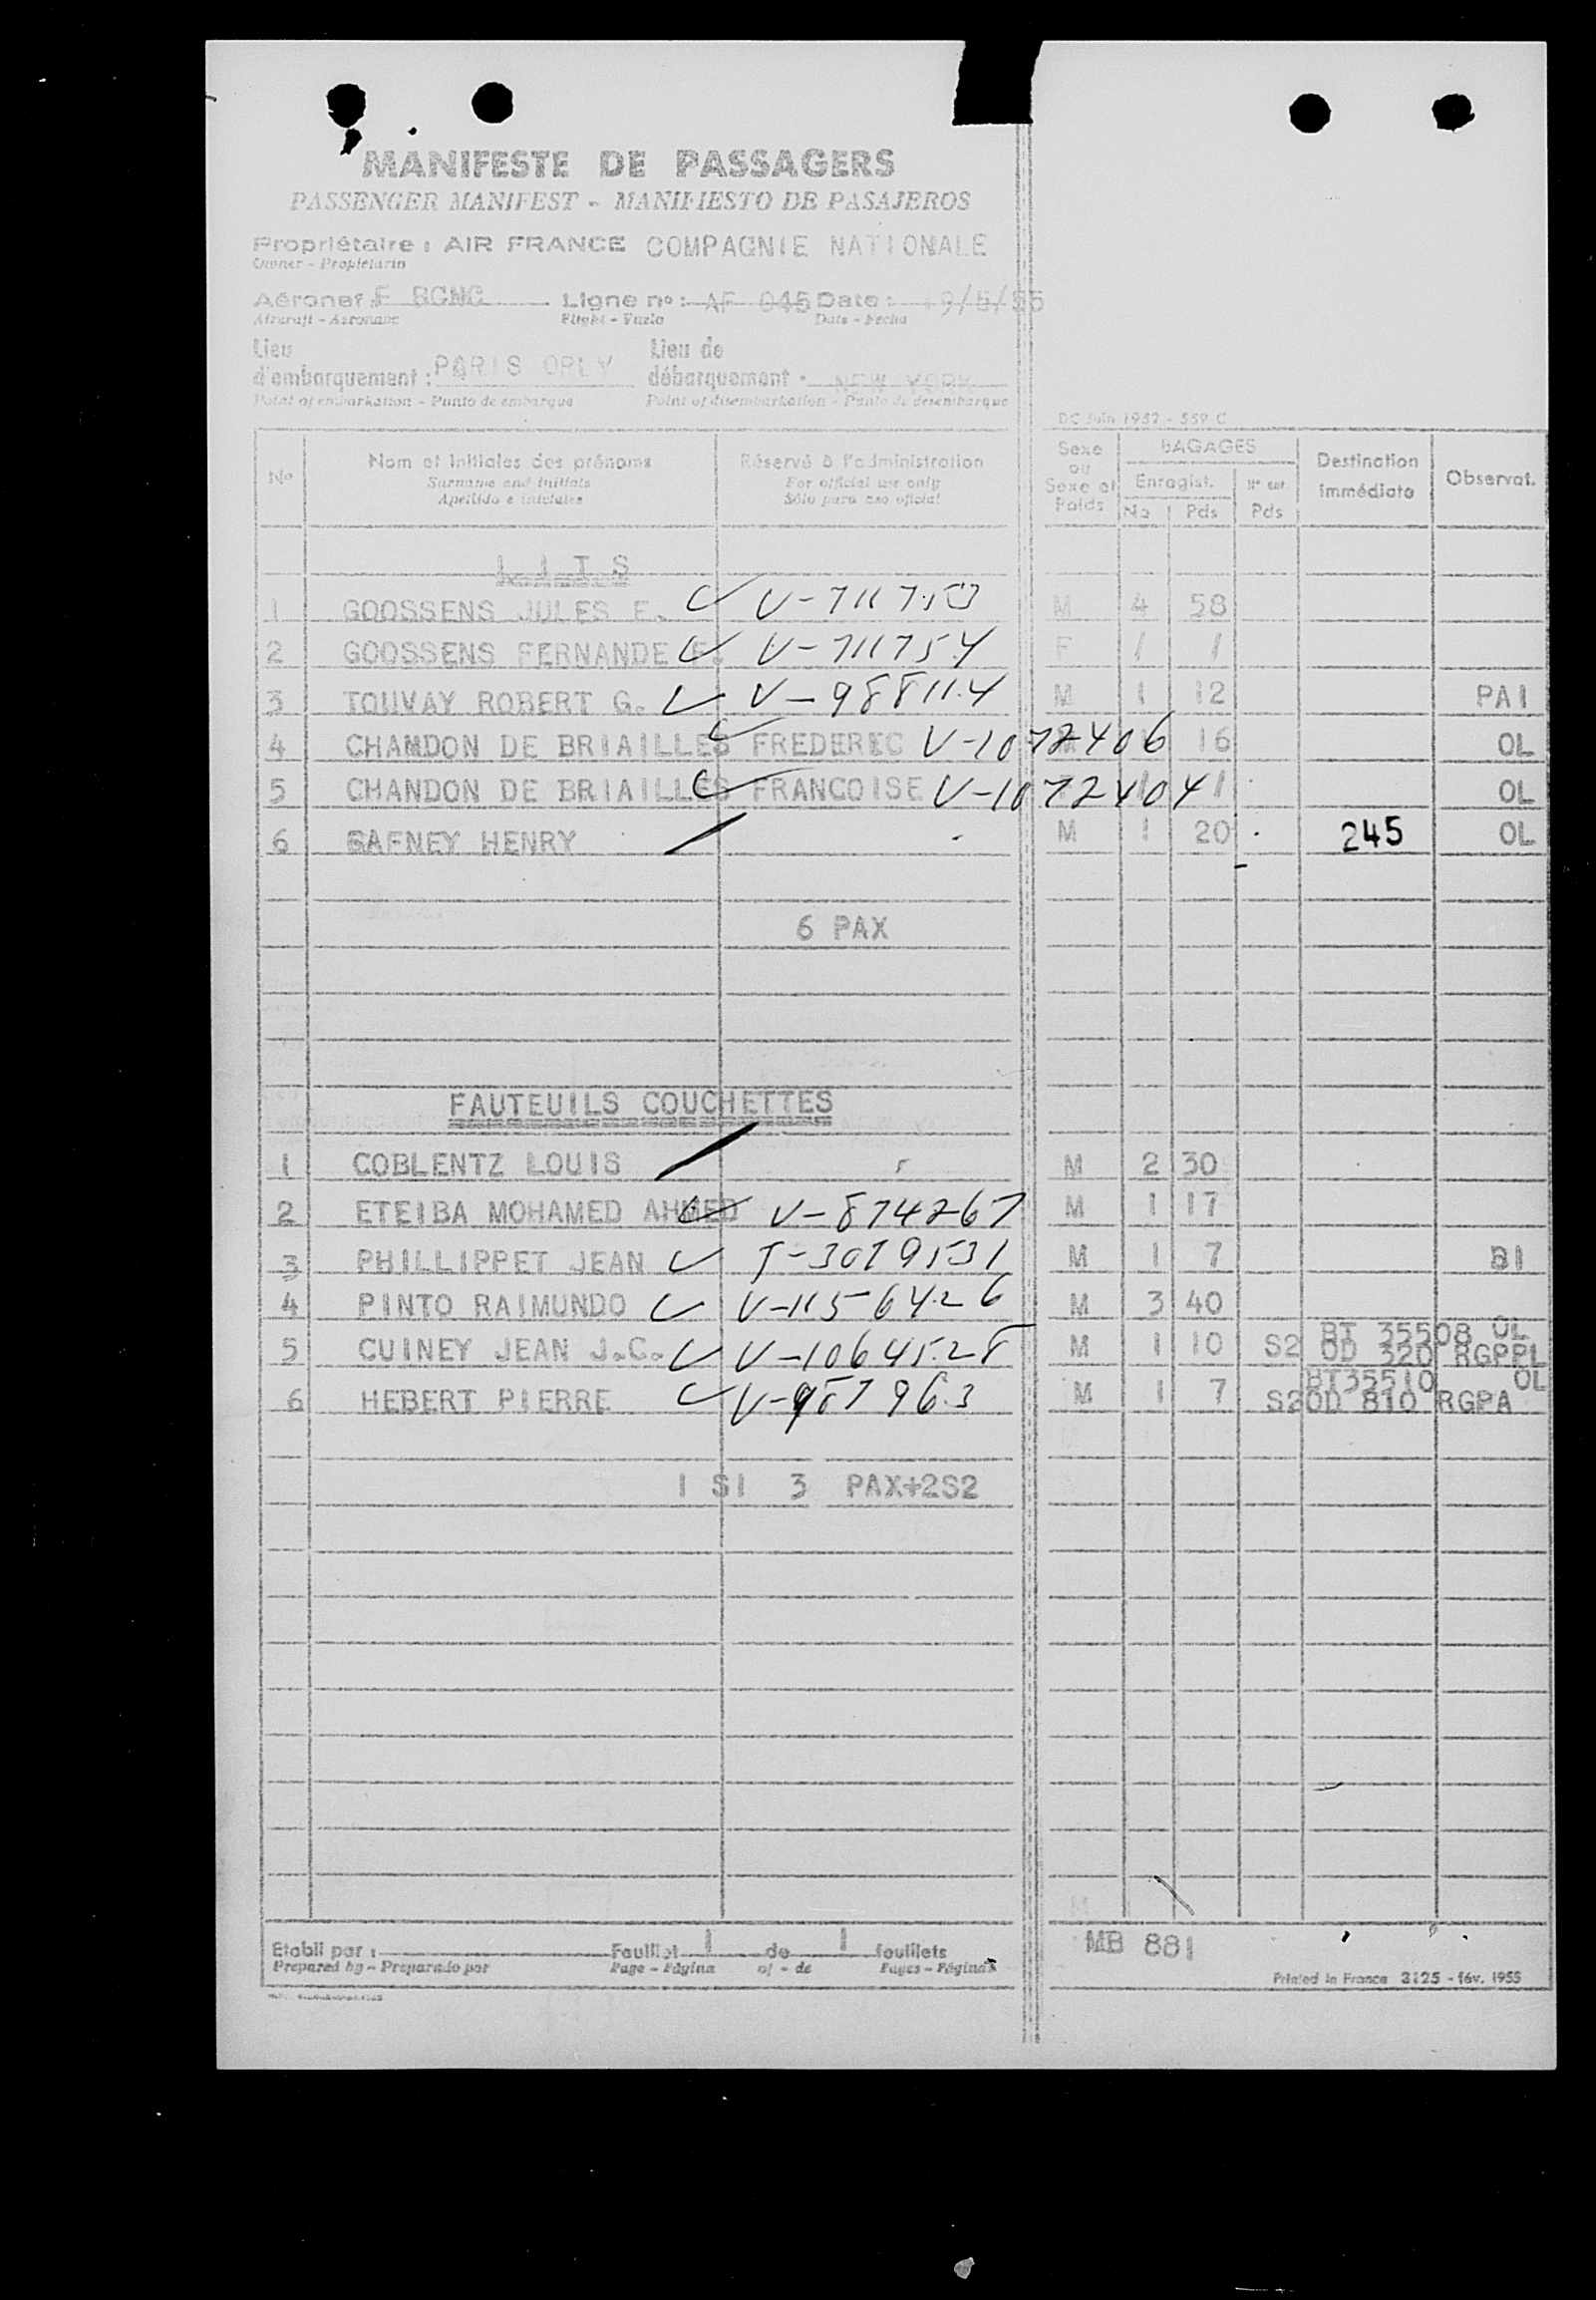 MANIFESTE DE PASSAGERS
PASSENGER MANIFEST - MANIFIESTO DE PASAJEROS
Propriétaire : AIR FRANCE COMPAGNIE NATIONALE
Owner - Propietario
Aéronef : F BGNG Ligne no : AF 045 Date : 19/5/55
Aircraft - Aeronave Flight - Vuelo Date - Fecha
Lieu d'embarquement : PARIS ORLY Lieu de débarquement : NEW YORK
Point of embarkation - Punto de embarque Point of disembarkation - Punto de desembarque
DC Juin 1952 - 559 C
No Nom et initiales des prénoms Réservé à l'administration Sexe ou Sexe et Poids BAGAGES Destination immédiate Observat.
Surname and initials For official use only Enregist.
Apellido e iniciales Sólo para uso oficial No Pds Pds
L I T S
1 GOOSSENS JULES E. V-711753 M 4 58
2 GOOSSENS FERNANDE E. V-711754 F / /
3 TOUVAY ROBERT G. V-988114 M 1 12 PA1
4 CHAMDON DE BRIAILLES FREDEREC V-1072406 M 1 16 OL
5 CHANDON DE BRIAILLES FRANCOISE V-1072404 / / OL
6 GAFNEY HENRY M 1 20 245 OL
6 PAX
FAUTEUILS COUCHETTES
1 COBLENTZ LOUIS M 2 30
2 ETEIBA MOHAMED AHMED V-874267 M 1 17
3 PHILLIPPET JEAN T-3079531 M 1 7 B1
4 PINTO RAIMUNDO V-1156426 M 3 40
5 CUINEY JEAN J.C. V-1064528 M 1 10 S2 BT 35508 OL
OD 320 RGPPL
6 HEBERT PIERRE V-987963 M 1 7 BT35510 OL
S2OD 810 RGPA
1 S1 3 PAX+2S2
Etabli par : Feuillet 1 de 1 feuillets MB 881
Prepared by - Preparado por Page - Página of - de Pages - Páginas
Printed in France 3125 - fév. 1955